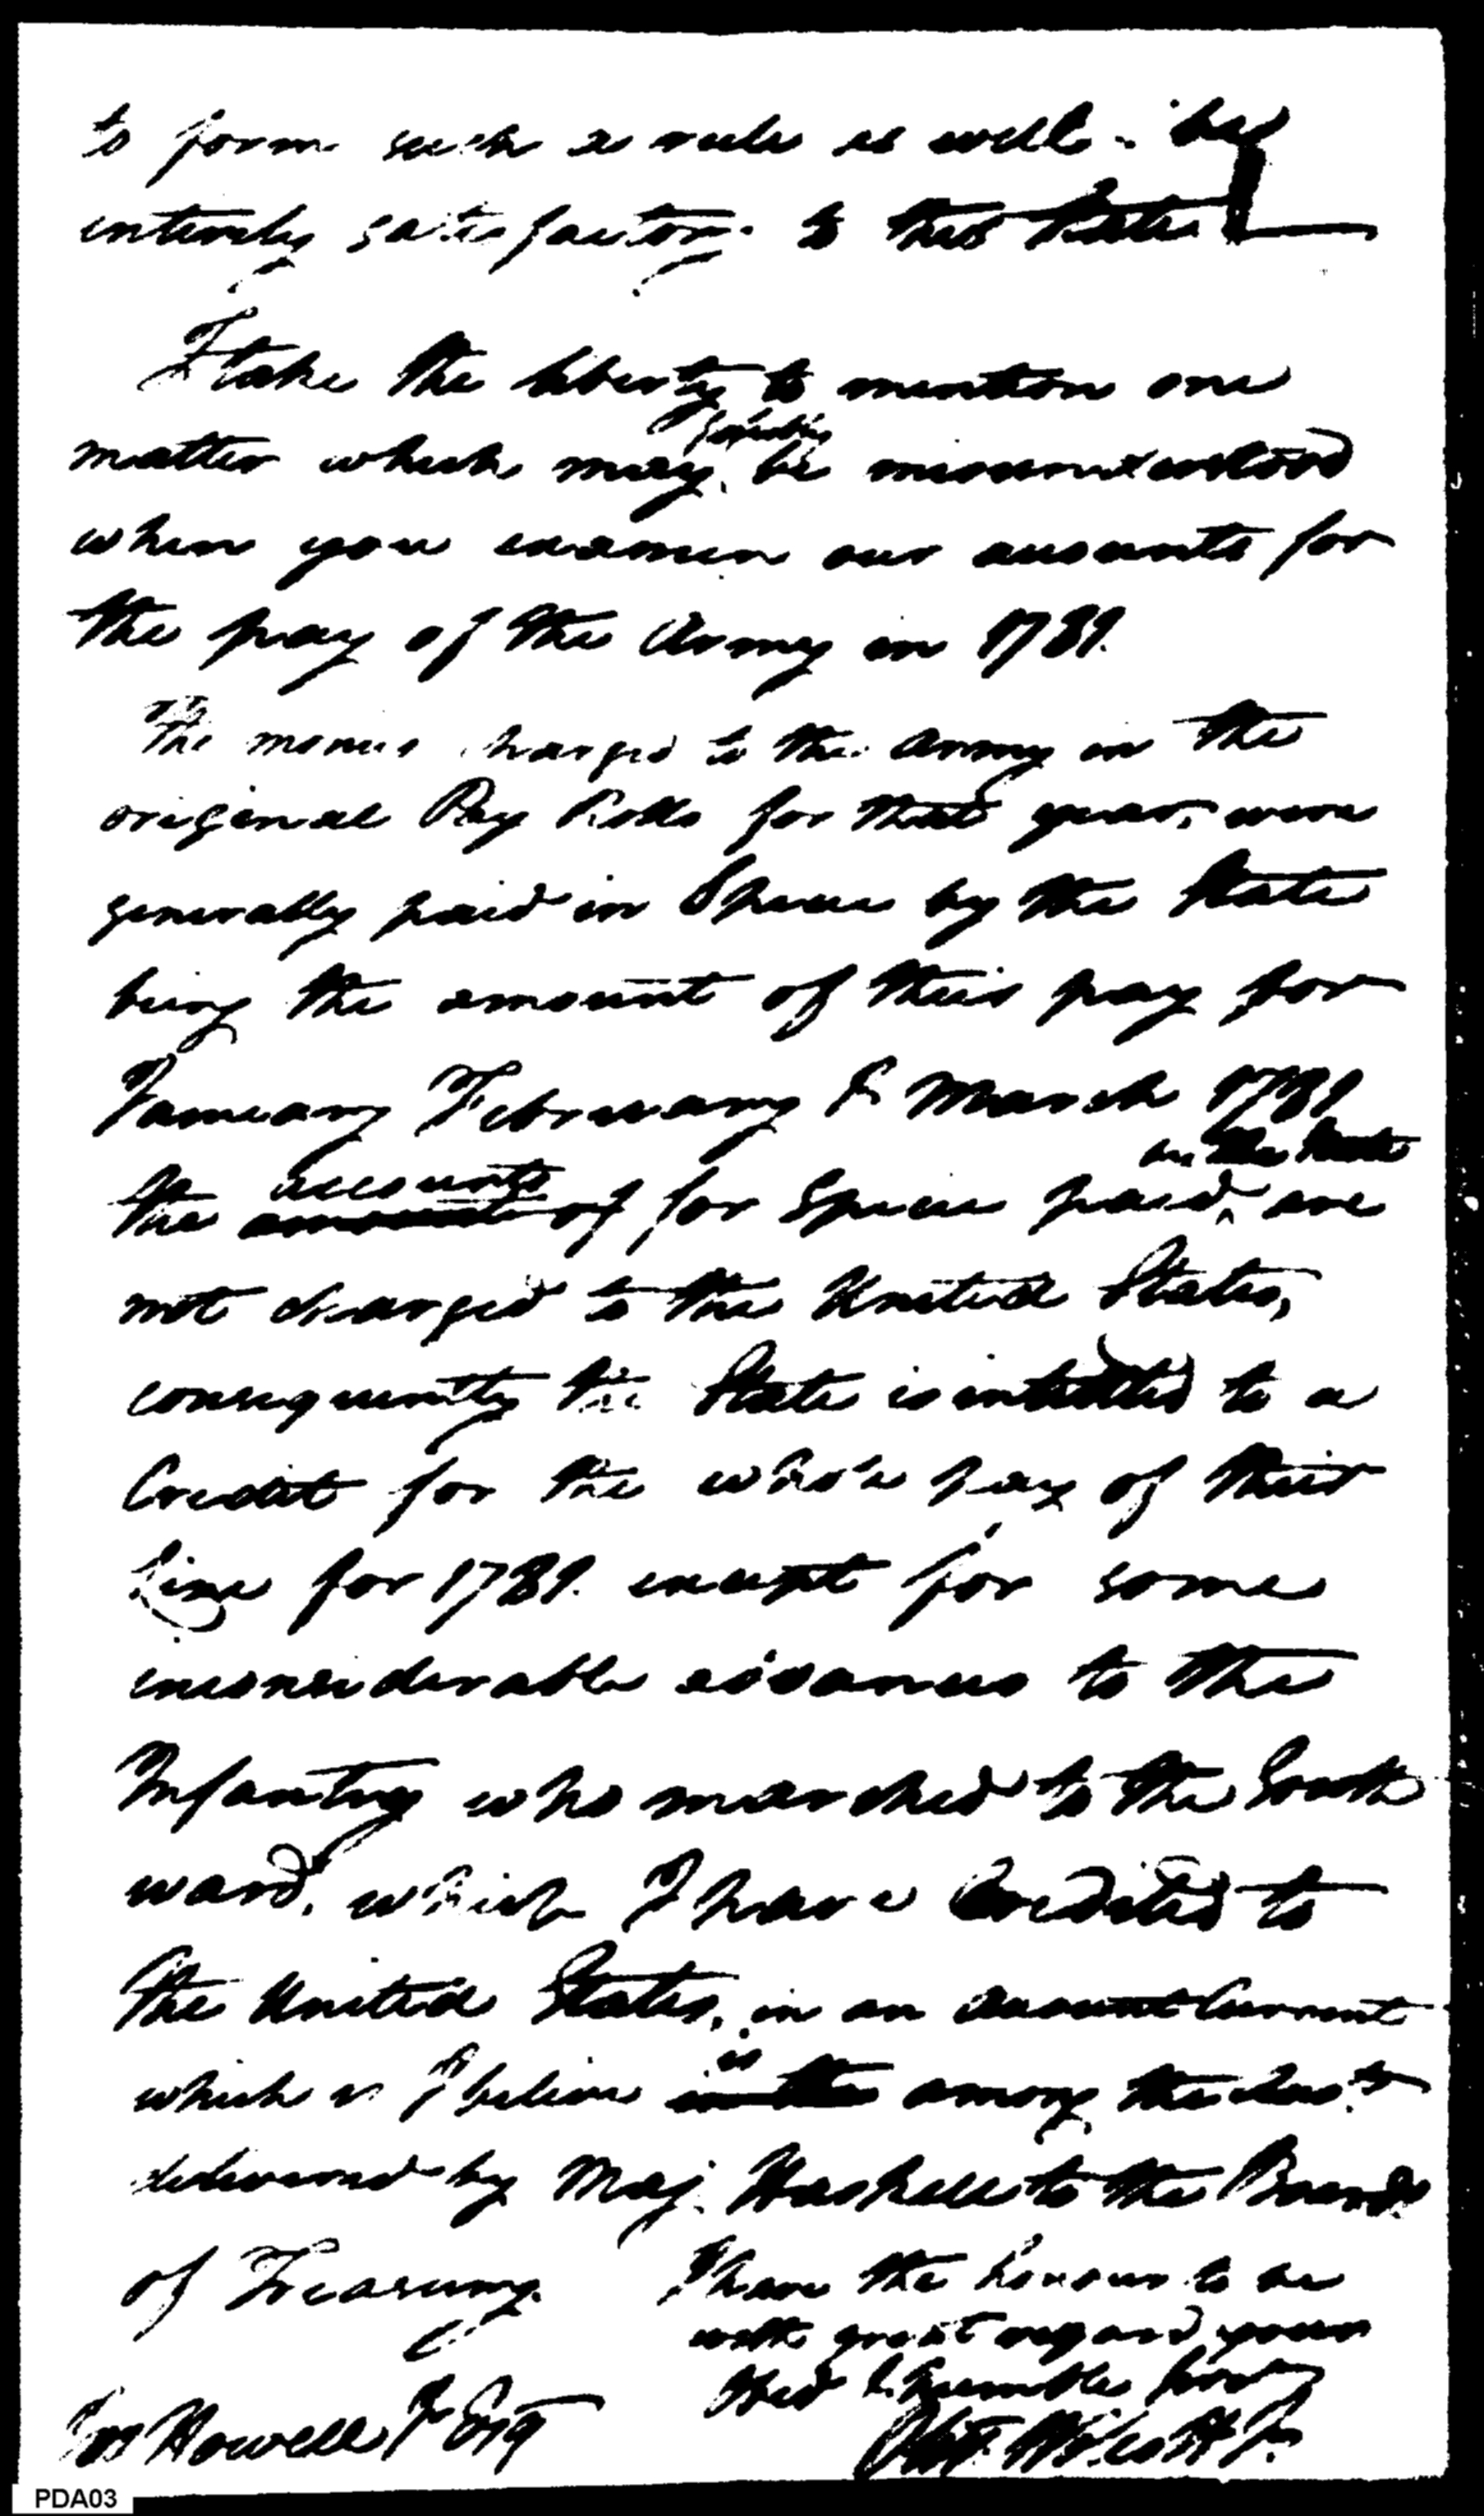 to form such a rule as will be
entirely satisfactory to this State
I take the liberty to mention one
matter which may possibly be misunderstood
when you examin our accounts for
the pay of the Army in 1781.
The monies charged to the Army in the
original Pay Rolls for that year, were
generally paid in Specie by the State
being the amount of their pay for
January February & March 1781
the accounts of for Specie paid by the State are
not charged to the United States,
consequently the State is intitled to a
Credit for the whole pay of their
Line for 1781. except for some
inconsiderable advances to the
Infantry who marched to the South
ward, which I have Credited to
the United States, in an Account Current
which is I believe is among the Accts
delivered by Maj. Haskell to the Board
of Treasury. I have the honour to be
with great regard your
Obed & humble Serv
Jos Howell Jr Esq
Olivr. Wolcott Jr.
PDA03